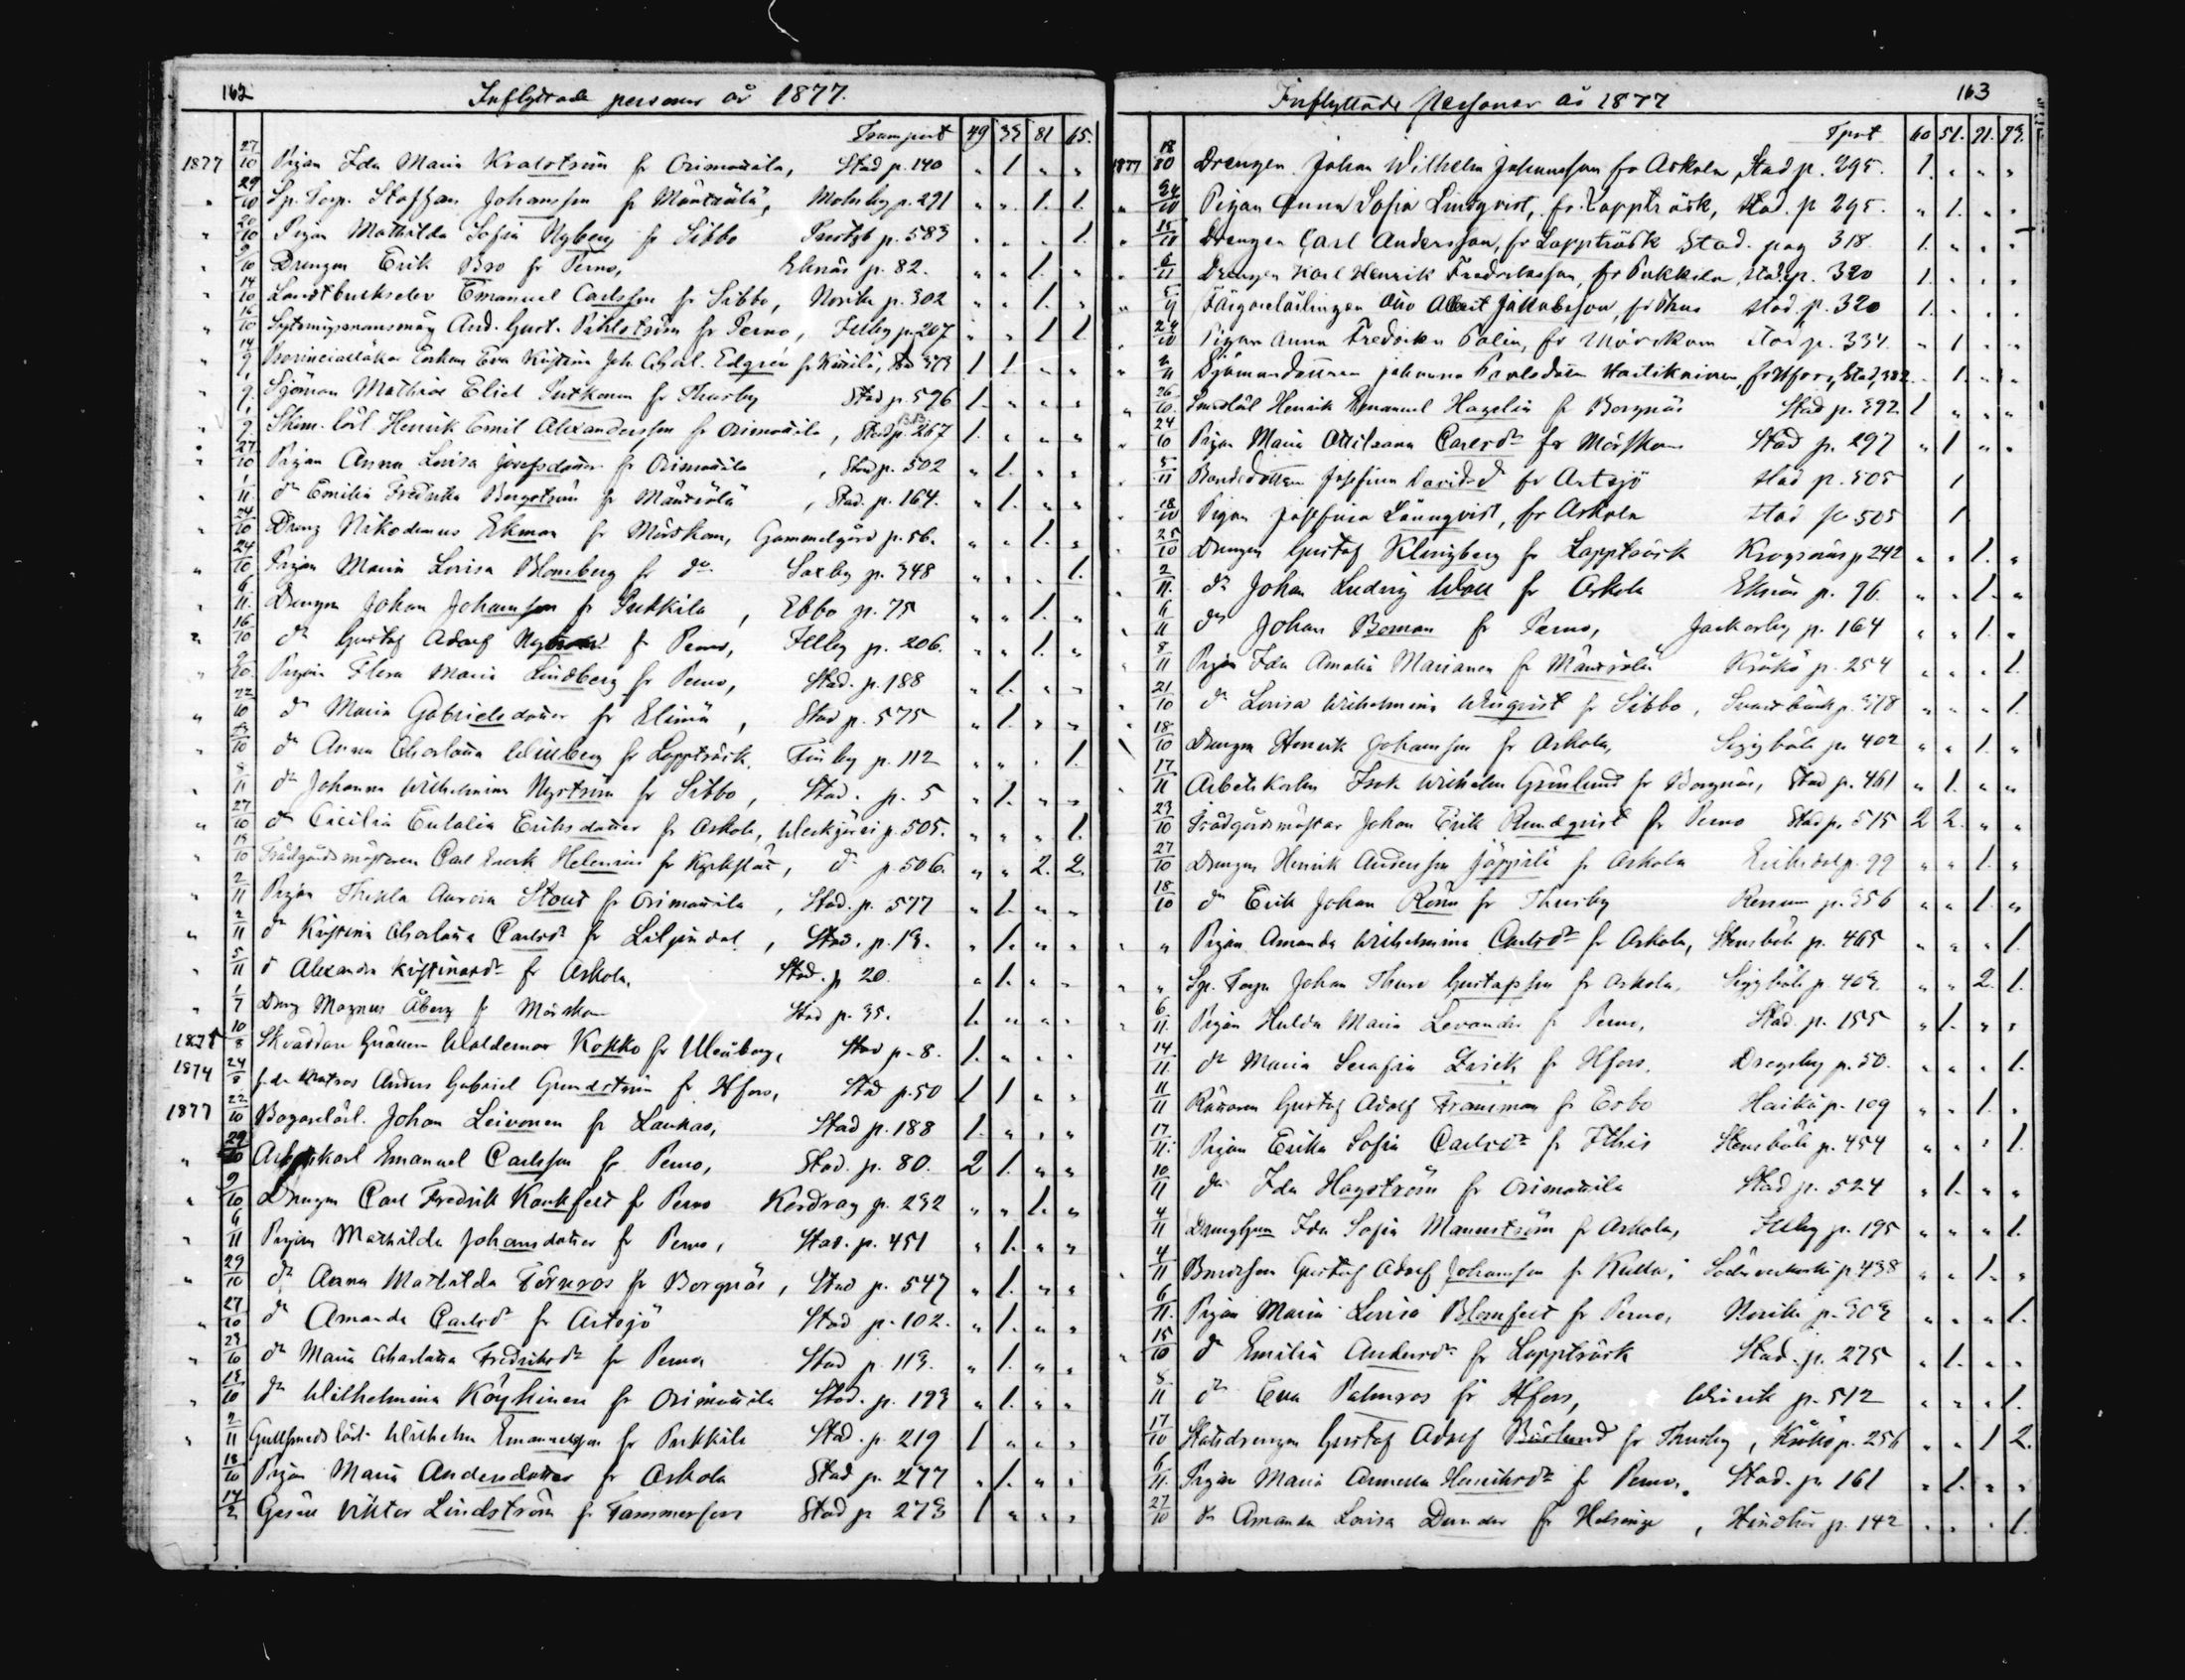 162 Inflyttade personer år 1877.
Transport 49 33 81 65.
1877 27/10 Pigan Ida Maria Kralström fr Orimattila, Stad p. 140 " 1 " "
" 29/10 Sp. Torp. Staffan Johansson fr Mäntsälä, p. 291 " " 1. 1.
" 20/10 Pigan Mathilda Sofia Nyberg fr Sibbo p. 583 " " " 1.
" 9/10 Drengen Erik Bro fr Perno, Eknäs p. 82. " " 1. "
" 14/10 Landtbrukselev Emanuel Carlsson fr Sibbo, Norike p. 302 " " 1. "
" 16/10 And. Gust. Pihlström fr Perno, Illby p. 207 " " 1 1
" 14/9 Enkan Eva Kristina Joh. Charl. Edgren fr 1 1 " "
" 1/9 Sjöman Mathias Eliel fr Thusby Stad p. 596 1. " " "
" 1/9 lärl Henrik Emil Alexandersson fr Orimattila, Stad p. 267 1. " " "
" 27/10 Pigan Anna Lovisa Josefsdotter fr Orimattila, Stad p. 502 " 1. " "
" 1/11 do Emilia Fredrika Bergström fr Mäntsälä, Stad. p. 164. " 1. " "
" 24/10 Dreng Nikodemus Ekman fr Mörskom, Gammelgård p. 56. " " 1. "
" 24/10 Pigan Maria Lovisa Blomberg fr do Saxby p. 348 " " " 1.
" 6/11 Drengen Johan Johansson fr Pukkila, Ebbo p. 75 " " 1. "
" 16/10 do Gustaf Adolf fr Perno, Illby p. 206. " " 1. "
" 9/10 Pigan Flora Maria Lindberg fr Perno, Stad. p. 188 " 1. " "
" 22/10 do Maria Gabrielsdotter fr Elimä, Stad p. 575 " 1. " "
" 23/10 do Anna Charlotta Winberg fr Lappträsk, Finby p. 112 " " " 1.
" 8/11 do Johanna Wilhelmina Nyström fr Sibbo, Stad. p. 5 " 1. " "
" 27/10 do Cecilia Eulalia Eriksdotter fr Askola, p. 505. " " " 1.
" 19/10 Trädgårdsmästaren Carl Henrik Helenius fr Kyrkslätt, do p 506. " " 2. 2.
" 2/11 Pigan Thekla Aurora Stout fr Orimattila, Stad. p. 577 " 1. " "
" 2/11 do Kristina Charlotta Carlsdr fr Liljendal, Stad. p. 13. " 1. " "
" 5/11 do Alexandra Kristinasdr fr Askola, Stad. p 20. " 1. " "
" 1/7 Dreng Magnus Åberg fr Mörskom Stad p. 35. 1. " " "
1875 10/8 Skräddare Gesällen Woldemar Kokko fr Uleåborg, Stad p. 8. 1. " " "
1874 24/8 f.d. Matros Anders Gabriel Grundström fr Hfors, Stad p. 50 1 1 " "
1877 22/10 Bagarelärl. Johan Leivonen fr Laukas, Stad p. 188 1. " " "
" 29/10 Arbetskarl Emanuel Carlsson fr Perno, Stad. p. 80. 2 1. " "
" 9/10 Drengen Carl Fredrik fr Perno Kerdrag p. 232 " " 1. "
" 6/11 Pigan Mathilda Johansdotter fr Perno, Stad. p. 451 " 1. " "
" 29/10 do Anna Mathilda Törnros fr Borgnäs, Stad p. 547 " 1. " "
" 27/10 do Amanda Carlsdr fr Artsjö Stad p. 102. " 1. " "
" 23/10 do Maria Charlotta Fredriksdr fr Perno Stad p. 113. " 1. " "
" 19/10 do Wilhelmina Köykinen fr Orimattila Stad. p. 193 " 1. " "
" 2/11 Guldsmedslärl. Wilhelm Emanuelsson fr Pukkila Stad. p. 219 1 " " "
18/10 Pigan Maria Andersdotter fr Askola Stad p. 277 " 1. " "
17/2 Gesäll Viktor Lindström fr Tammerfors Stad p 273 1 " " "
Inflyttade Personer år 1877 163
Tprt 60 51. 91. 73.
1877 18/10 Drengen Johan Wilhelm Johansson fr Askola, Stad p. 295. 1. " " "
" 24/10 Pigan Anna Sofia Lindqvist, fr Lappträsk, Stad. p 295. " 1. " "
" 15/10 Drengen Carl Andersson, fr Lappträsk Stad. pag 318. 1. " " "
" 6/11 Drengen Karl Henrik Fredriksson, fr Pukkila, Stad p. 320 1. " " "
" 5/9 Färgarelärlingen Otto Albert Jakobsson, fr Åbo Stad. p. 320 1. " " "
" 24/10 Pigan Anna Fredrika Palin, fr Mörskom Stad p. 334. " 1 " "
" 2/11 Sjömansdottern Johanna Paulsdotter Hartikainen, fr Hfors, Stad, 382. " 1. " "
" 26/10 Smedslärl Henrik Emanuel Hagelin fr Borgnäs Stad p. 392. 1 " " "
" 24/10 Pigan Maria Carlsdr fr Mörskom Stad p. 297 " 1 " "
" 5/11 Bondedottern Josefina Davidsd fr Artsjö Stad p. 505 1
" 18/10 Pigan Josefina Lönnqvist, fr Askola Stad p 505 1
" 25/10 Drengen Gustaf Klingberg fr Lappträsk Krogsnäs p 242 " " 1. "
" 2/11. do Johan Ludvig Wall fr Askola Eknäs p. 96. " " 1. "
" 6/11 do Johan Boman fr Perno, Jackarby p. 164 " " 1. "
" 8/11 Pigan Ida Amalia Marianen fr Mäntsälä Kråkö p. 254 " " " 1.
" 21/10 do Lovisa Wilhelmina Winqvist fr Sibbo, Svartbäck p. 378 " " " 1.
18/10 Drengen Henrik Johansson fr Askola, Siggböle p. 402 " " 1. "
" 17/11 Arbetskarlen Isak Wilhelm Grönlund fr Borgnäs, Stad p. 461 " 1. " "
23/10 Trädgårdsmästar Johan Erik Rundqvist fr Perno Stad p. 515 2 2. " "
27/10 Drengen Henrik Andersson Jäppilä fr Askola Eriksdal p. 99 " " 1. "
18/10 do Erik Johan Renn fr Thusby Renum p. 356 " " 1. "
" " Pigan Amanda Wilhelmina Carlsdr fr Askola, Stensböle p. 465 " " " 1.
" " Sp. Torp. Johan Thure Gustafsson fr Askola, Siggböle p. 403. " " 2. 1.
" 6/11. Pigan Hulda Maria Levander fr Perno, Stad. p. 155 " 1. " "
14/11. do Maria Serafia fr Hfors, Drägsby p. 50. " " " 1.
11/11 Rättaren Gustaf Adolf Fransman fr Esbo Haiko p. 109 " " 1. "
17/11. Pigan Erika Sofia Carlsdr fr Ithis Stensböle p. 454 " " " 1.
10/11 do Ida Hagström fr Orimattila Stad p. 524 " 1. " "
4/11 Ida Sofia Mannström fr Askola, Illby p. 195 " " " 1.
" 4/11 Gustaf Adolf Johansson fr Kulla, p. 438 " " 1. "
6/11. Pigan Maria Lovisa Blomfelt fr Perno, Norike p. 303 " " " 1.
" 15/10 do Emilia Andersdr fr Lappträsk Stad. p. 275 " 1. " "
8/11 do Eva Palmros fr Hfors, p. 512 " " " 1.
17/10 Statsdrengen Gustaf Adolf Börlund fr Thusby, Kråkö p. 256 " " 1 2.
6/11. Pigan Maria Henriksdr fr Perno. Stad. p. 161 " 1. " "
27/10 do Amanda Lovisa Dunder fr Helsinge, Hindhår p. 142 " " " 1.